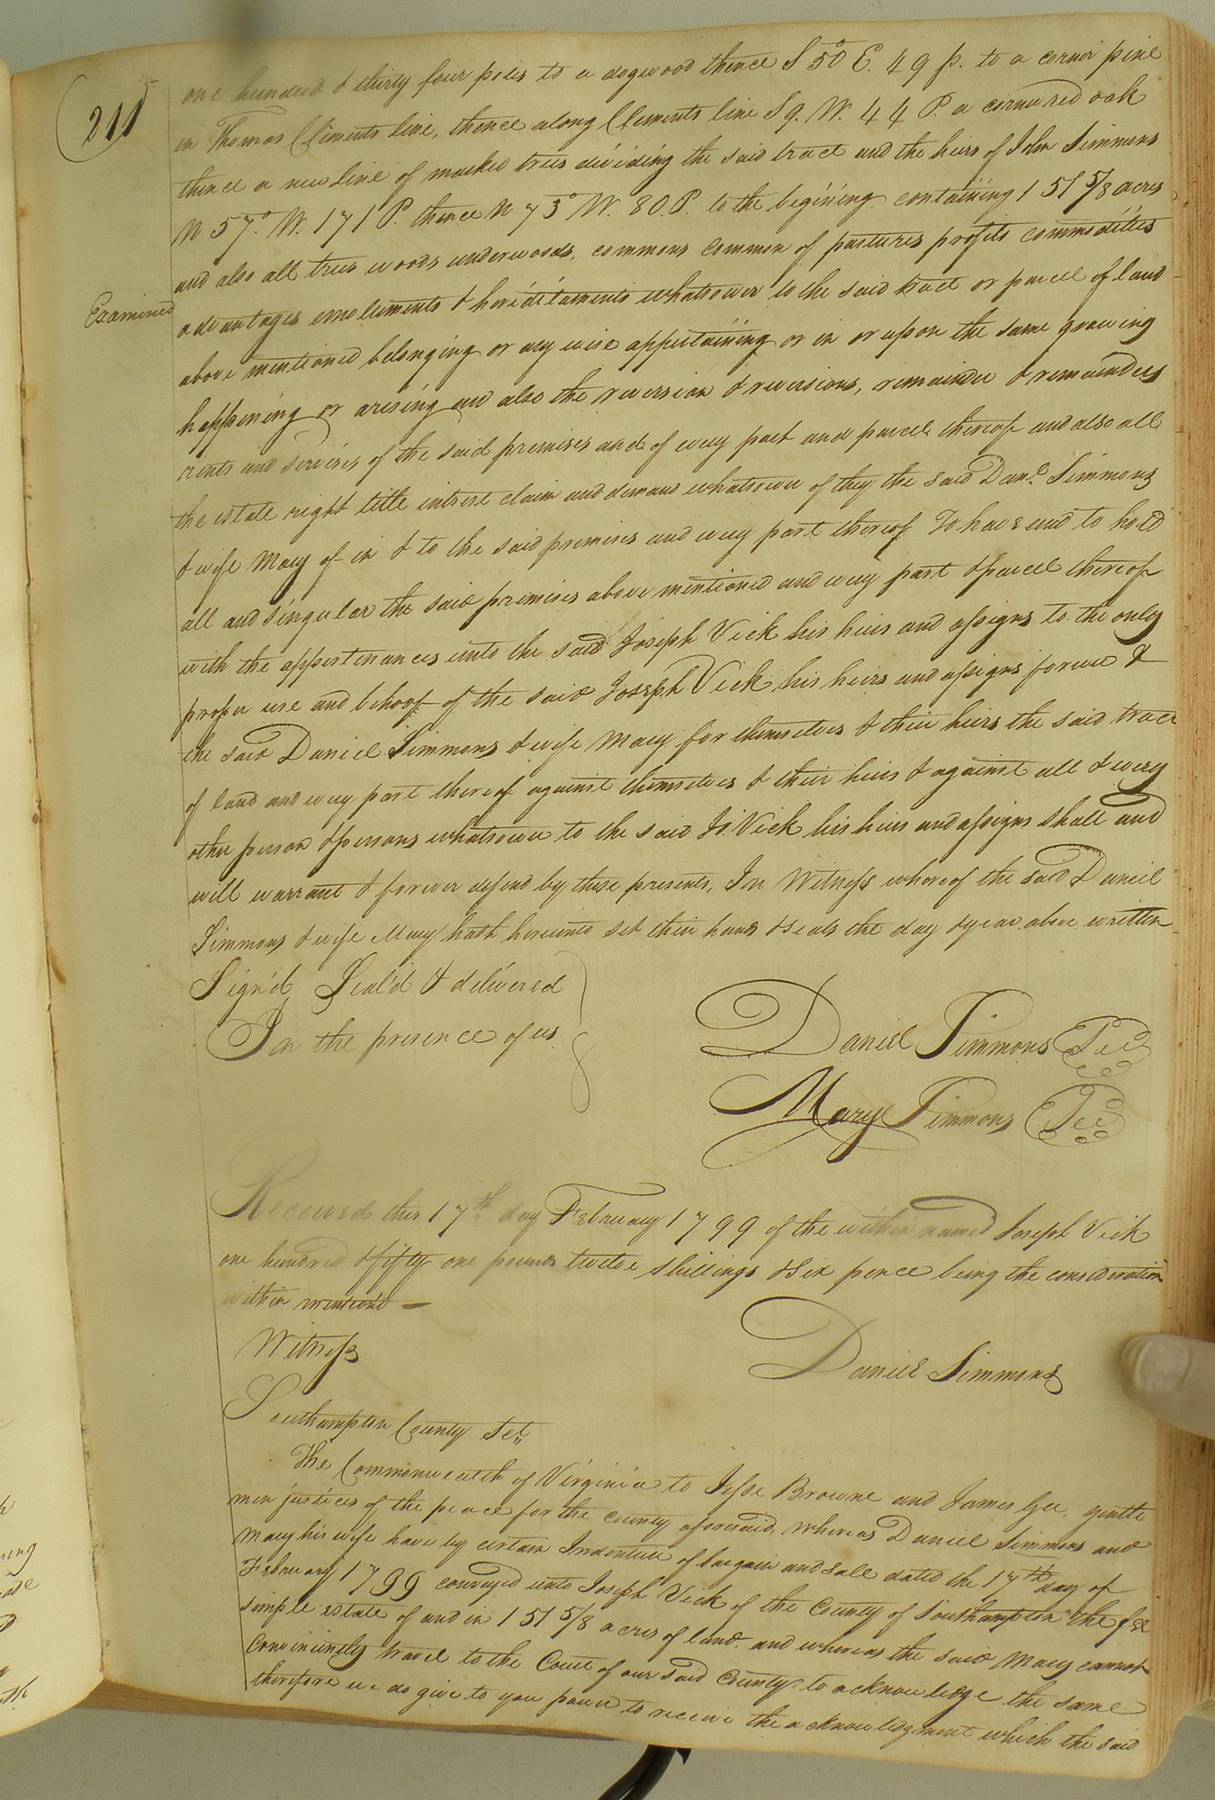 211
one hundred & thirty four poles to a dogwood thence S 50° E. 49 p. to a corner pine
in Thomas Clements line, thence along Clements line S 9. W. 44 P. a corner red oak
thence a new line of marked trees dividing the said tract and the heirs of John Simmons
N 57.° W. 171 P. thence N 73° W. 80. P. to the begining containing 151 5/8 acres
and also all trees woods underwoods, commons common of pastures profits commodities
Examined
advantages emoluments & hereditaments whatsoever to the said tract or parcel of land
above mentioned belonging or any wise appertaining or in or upon the same growing
happening or arising and also the reversion & reversions, remainder & remainders
rents and services of the said premises and of every part and parcel thereof and also all
the estate right title interest claim and demand whatsoever of they the said Danl. Simmons
& wife Mary of in & to the said premises and every part thereof To have and to hold
all and singular the said premises above mentioned and every part & parcel thereof
with the appertinances unto the said Joseph Vick his heirs and assigns to the only
proper use and behoof of the said Joseph Vick his heirs and assigns forever &
the said Daniel Simmons & wife Mary for themselves & their heirs the said tract
of land and every part thereof against themselves & their heirs & against all & every
other person & persons whatsoever to the said Js. Vick his heirs and assigns shall and
will warrant & forever defend by these presents, In Witness whereof the said Daniel
Simmons & wife Mary hath hereunto set their hands & seals the day & year above written
Sign'd Seal'd & delivered
In the presence of us
Daniel Simmons
Mary Simmons
Received this 17th day February 1799 of the within named Joseph Vick
one hundred & fifty one pounds twelve shillings & six pence being the consideration
within mentiond
Witness
Daniel Simmons
Southampton County Sct.
The Commonwealth of Virginia to Jesse Browne and James Gee, gentle
men justices of the peace for the county aforesaid, whereas Daniel Simmons and
Mary his wife have by certain Indenture of bargain and sale dated the 17th day of
February 1799 conveyed unto Joseph Vick of the County of Southampton the fee
simple estate of and in 151 5/8 acres of land and whereas the said Mary cannot
Conviniently travel to the Court of our said County to acknowledge the same
therefore we do give to you power to receive the acknowledgment which the said